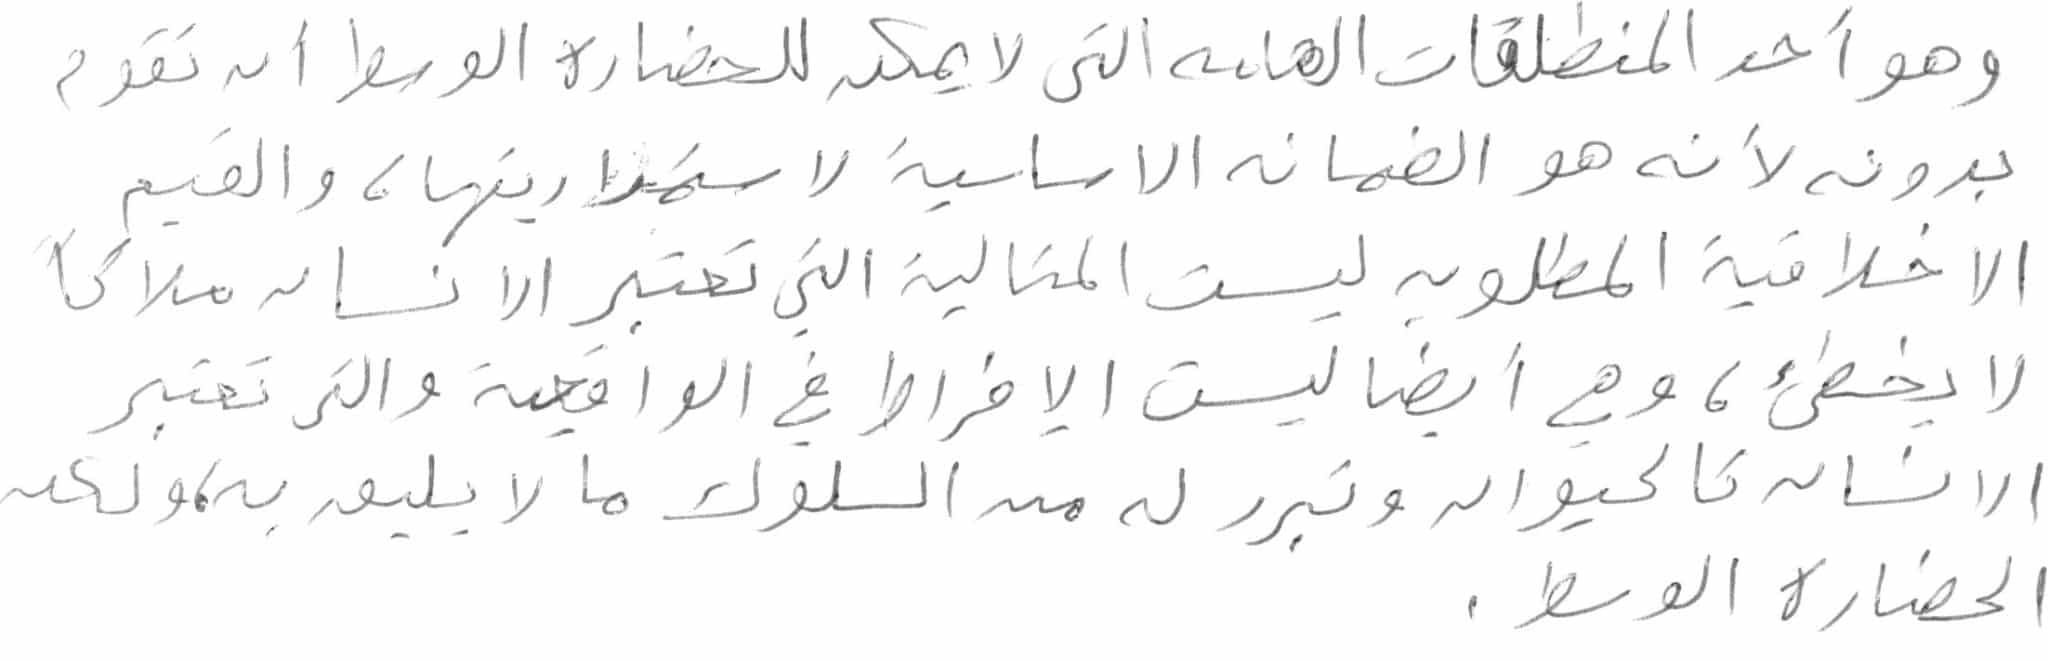 وهو أحد المنطلقات الهامه التى لا يمكن للحضارة الوسط أن تقوم
بدونه لأنه هو الضمانه الاساسية لا ستمراريتها، والقيم
الاخلاقية المطلوبه ليست المثالية التي تعتبر الانسان ملاكاً
لا يخطئ، وهي أيضا ليست الإفراط في الواقعية والتى تعتبر
الانسان كالحيوان وتبرر له من السلوك ما لا يليق به، ولكن
الحضارة الوسط .